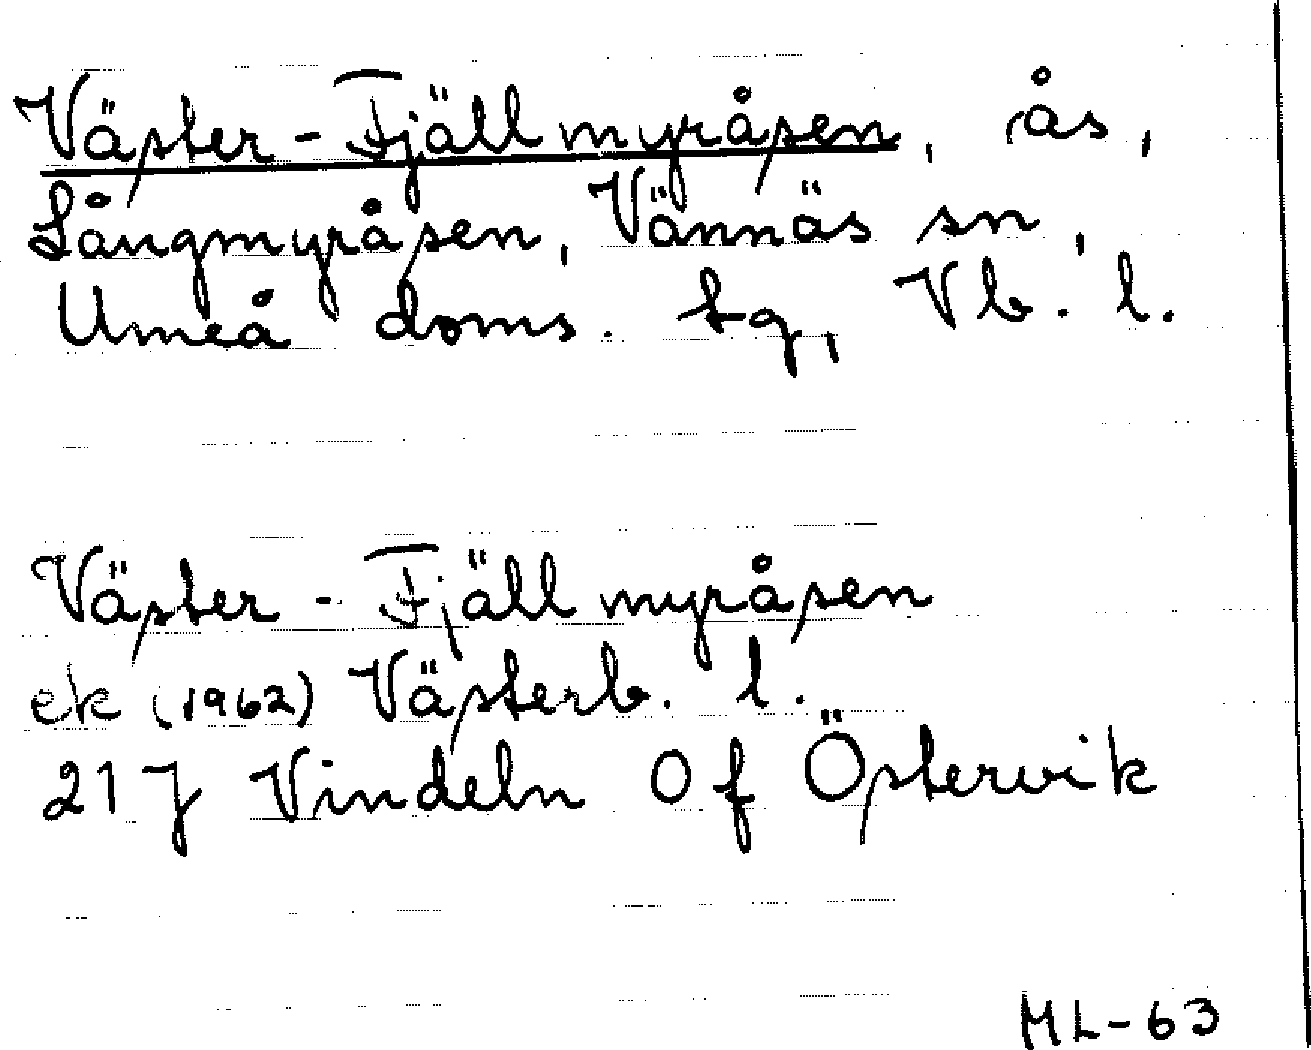 Väster-Fjällmyråsen, ås,
Långmyråsen, Vännäs sn,
Umeå doms. tg, Vb. l.
Väster-Fjällmyråsen
ek (1962) Västerb. l.
21 J Vindeln 0 f Östervik
ML-63